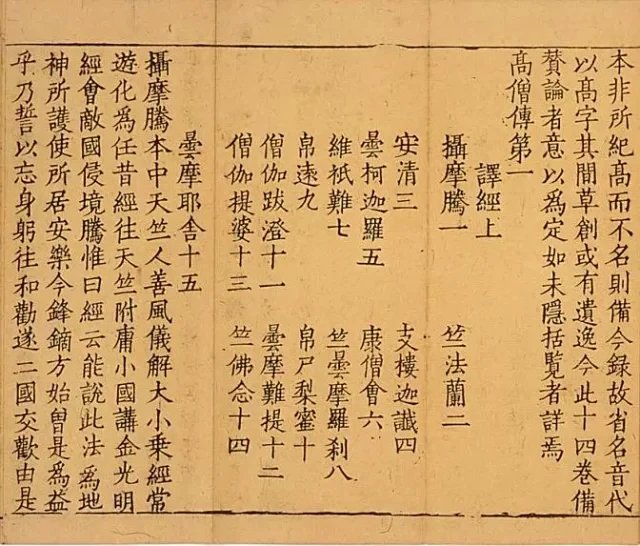 本非所紀髙而不名則備今録故省名音代
以髙字其間草創或有遺逸今此十四卷備
賛論者意以爲定如未隱括覧者詳焉
髙僧傳第一
譯經上
攝摩騰一 竺法蘭二
安清三 支樓迦讖四
曇柯迦羅五 康僧會六
維祇難七 竺曇摩羅刹八
帛遠九 帛尸梨蜜十
僧伽跋澄十一 曇摩難提十二
僧伽提婆十三 竺佛念十四
曇摩耶舎十五
攝摩騰本中天竺人善風儀解大小乗經常
遊化爲任昔經往天竺附庸小國講金光明
經會敵國侵境騰惟曰經云能說此法爲地
神所護使所居安樂今鋒鏑方始曽是爲益
乎乃誓以忘身躬往和勸遂二國交歡由是